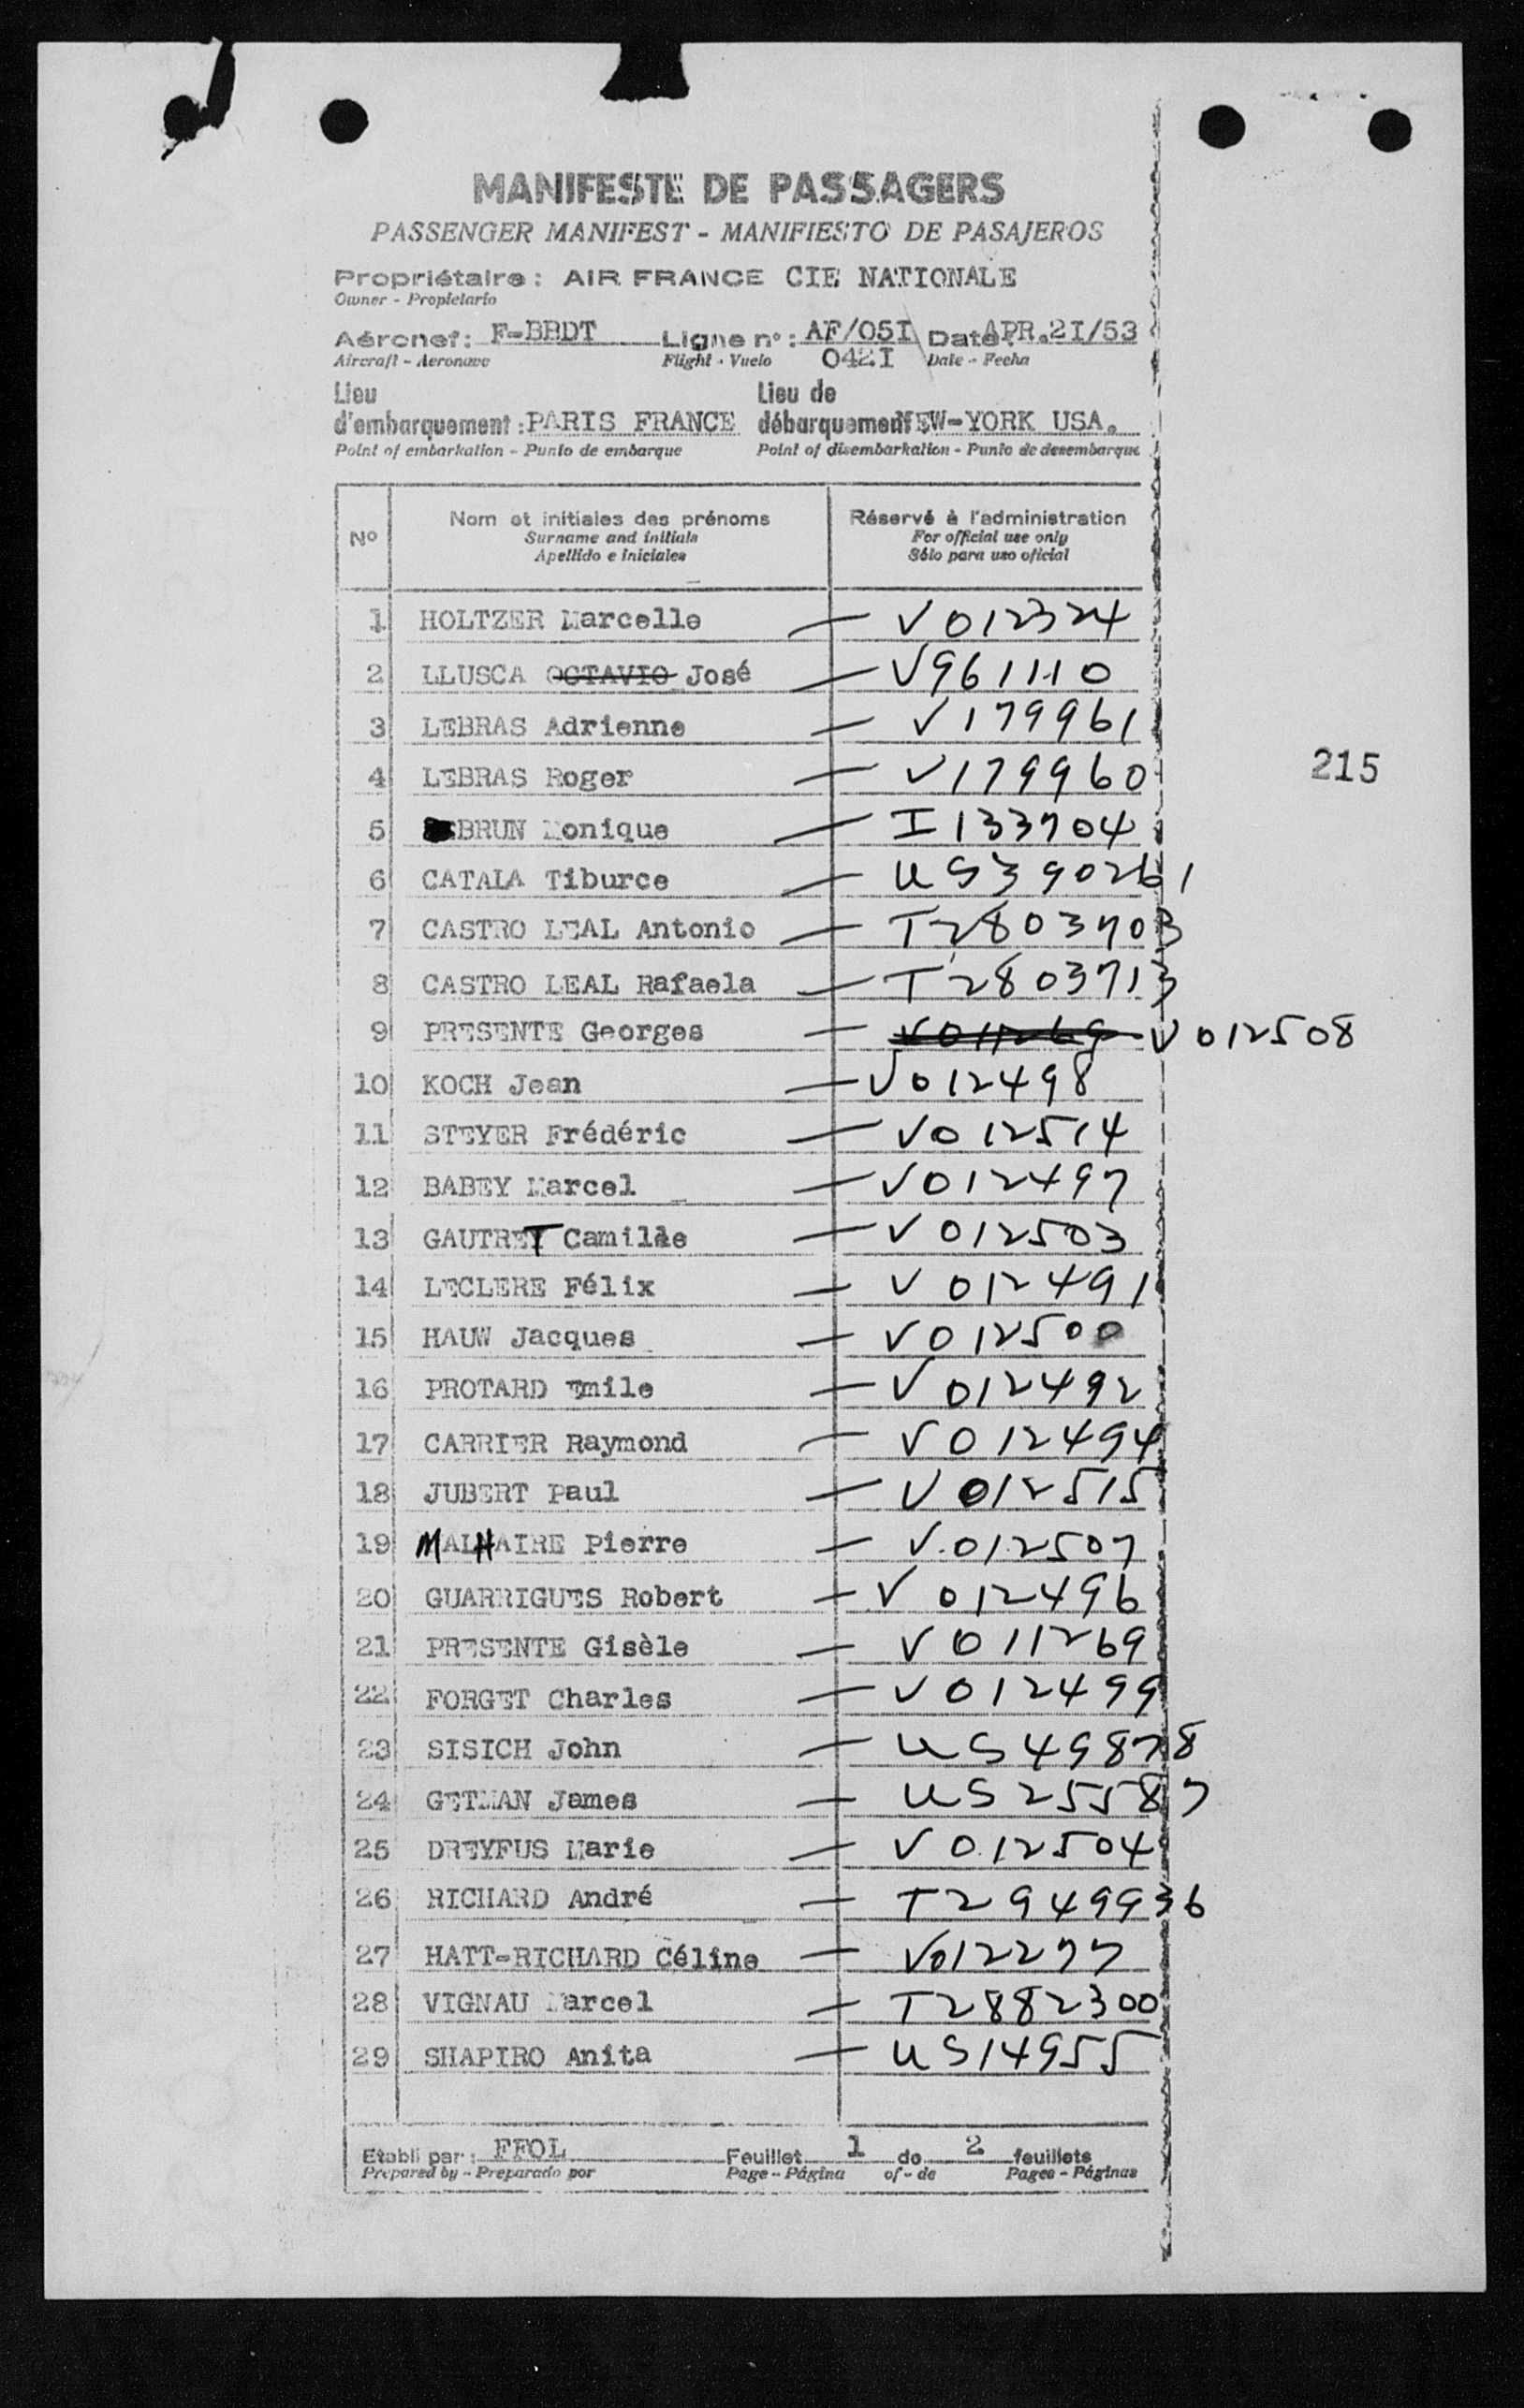 MANIFESTE DE PASSAGERS
PASSENGER MANIFEST - MANIFIESTO DE PASAJEROS
Propriétaire : AIR FRANCE CIE NATIONALE
Owner - Propietario
Aéronef : F-BBDT Ligne n° : AF/05I Date : APR.2I/53
Aircraft - Aeronave Flight - Vuelo 042I Date - Fecha
Lieu Lieu de
d'embarquement : PARIS FRANCE débarquement NEW-YORK USA.
Point of embarkation - Punto de embarque Point of disembarkation - Punto de desembarque
N° Nom et initiales des prénoms Réservé à l'administration
Surname and initials For official use only
Apellido e iniciales Sólo para uso oficial
1 HOLTZER Marcelle — V012324
2 LLUSCA OCTAVIO José — V961110
3 LEBRAS Adrienne — V179961
4 LEBRAS Roger — V179960
215
5 BRUN Monique — I133704
6 CATALA Tiburce — US390261
7 CASTRO LEAL Antonio — T2803703
8 CASTRO LEAL Rafaela — T2803713
9 PRESENTE Georges — V011269 V012508
10 KOCH Jean — V012498
11 STEYER Frédéric — V012514
12 BABEY Marcel — V012497
13 GAUTRET Camille — V012503
14 LECLERE Félix — V012491
15 HAUW Jacques — V012500
16 PROTARD Emile — V012492
17 CARRIER Raymond — V012494
18 JUBERT Paul — V012515
19 MALHAIRE Pierre — V.012507
20 GUARRIGUES Robert — V012496
21 PRESENTE Gisèle — V011269
22 FORGET Charles — V012499
23 SISICH John — US49878
24 GETMAN James — US25587
25 DREYFUS Marie — V012504
26 RICHARD André — T2949936
27 HATT-RICHARD Céline — V012277
28 VIGNAU Marcel — T2882300
29 SHAPIRO Anita — US14955
Etabli par : FFOL Feuillet 1 de 2 feuillets
Prepared by - Preparado por Page - Página of - de Pages - Páginas